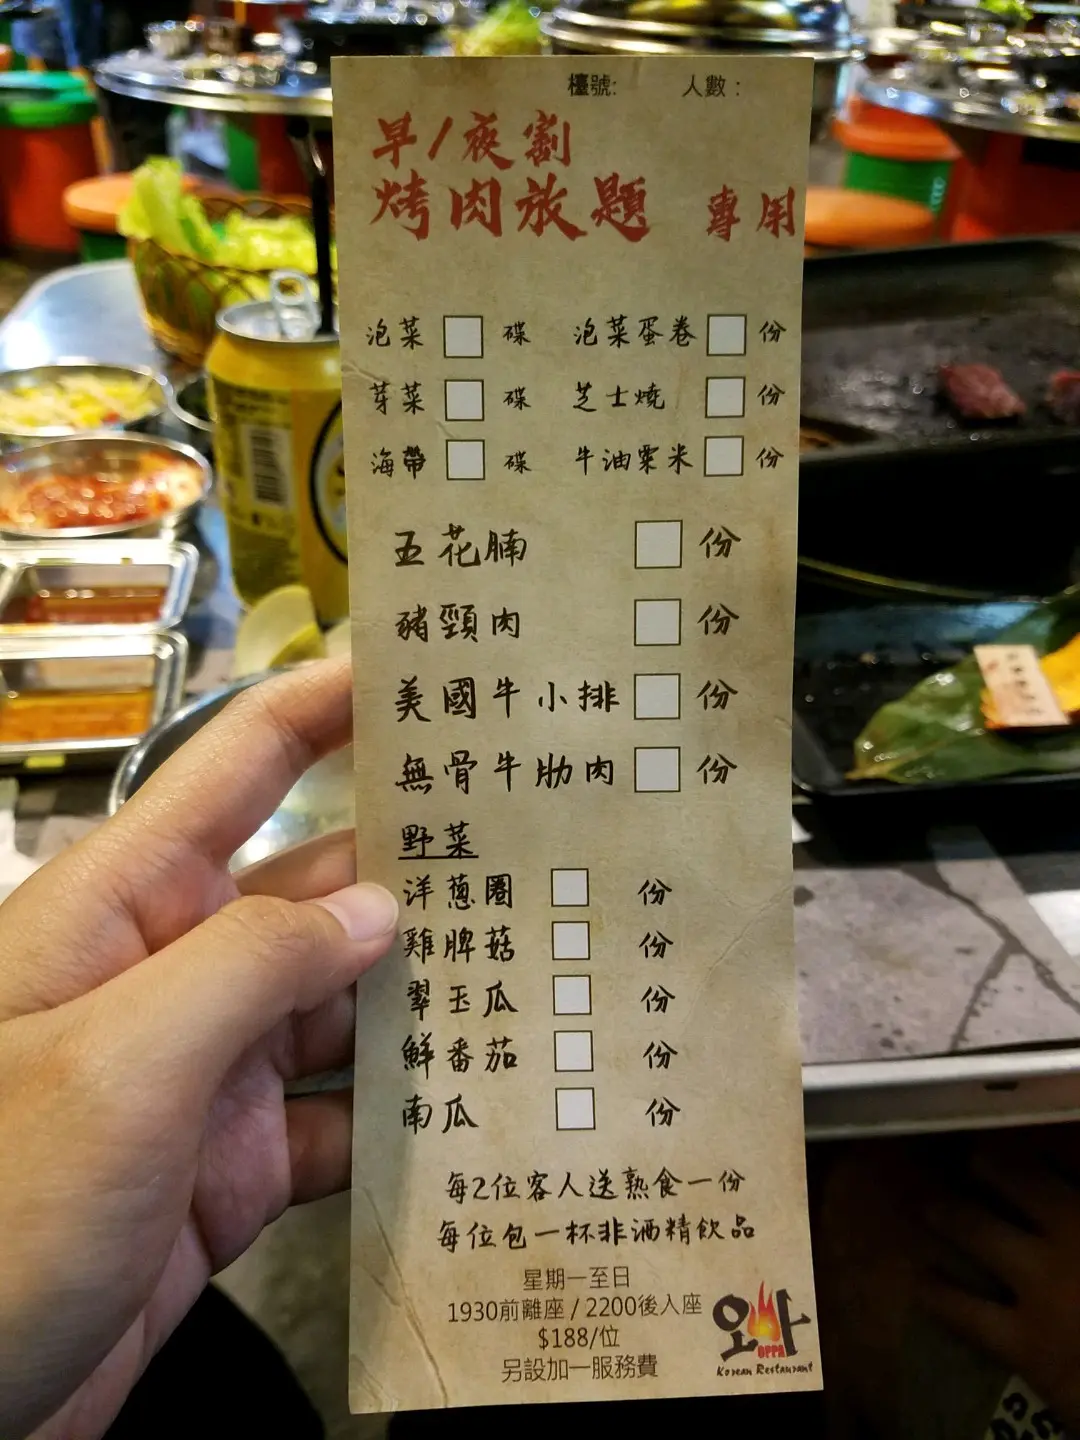 檯號: 人數：
早/夜割
烤肉放題 專用
泡菜 碟 泡菜蛋卷 份
芽菜 碟 芝士燒 份
海帶 碟 牛油粟米 份
五花腩 份
豬頸肉 份
美國牛小排 份
無骨牛肋肉 份
野菜
洋蔥圈 份
雞脾菇 份
翠玉瓜 份
鮮番茄 份
南瓜 份
每2位客人送熟食一份
每位包一杯非酒精飲品
星期一至日
1930前離座 / 2200後入座
$188/位
另設加一服務費
오빠
OPPA
Korean Restaurant